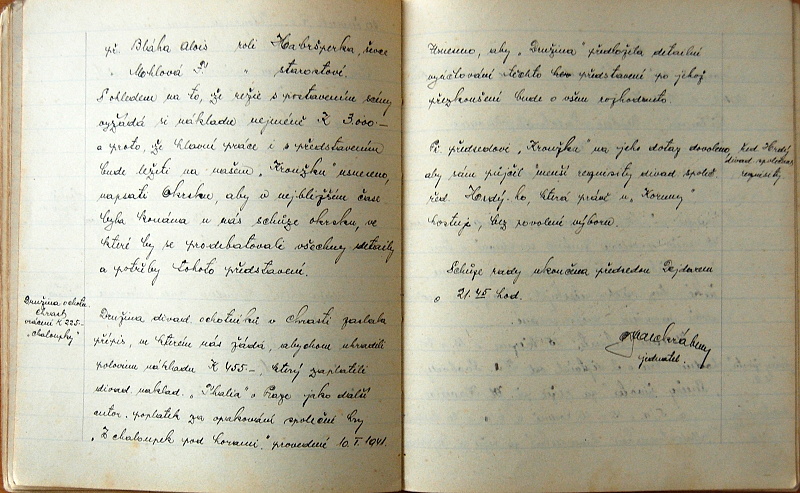 př. Bláha Alois roli Habršperka, ševce
" Mohlová P. " starostové.
S ohledem na to, že režie s postavením scény
vyžádá si nákladu nejméně K 3.000-
a proto, že hlavní práce i s představením
bude ležeti na našem „Kroužku" usneseno,
napsati Okrsku, aby v nejbližším čase
byla konána u nás schůze okrsku, ve
které by se prodebatovali všechny detaily
a potřeby tohoto představení.
Družina ochotn.
Chrast
vrácení K 225.-
„Chaloupky"
Družina divad. ochotníků v Chrasti zaslala
přípis, ve kterém nás žádá, abychom uhradili
polovinu nákladu K 455-, který zaplatili
divad. naklad. „Thalia" v Praze jako další
autor. poplatek za opakování společné hry
„Z chaloupek pod horami." provedené 10. I. 1941.
Usneseno, aby „Družina" předložila detailní
vyúčtování těchto představení po jehož
přezkoušení bude o všem rozhodnuto.
Př. předsedovi „Kroužku" na jeho dotaz dovoleno,
aby sám půjčil menší requisity divad. společ.
řed. Hordý-ho, která práv. u „Koruny"
hostuje, bez povolení výboru.
řed. Hordý
divad. společnost
requisity
Schůze rady ukončena předsedou Pejdarem
o 21.45 hod.
jednatel.